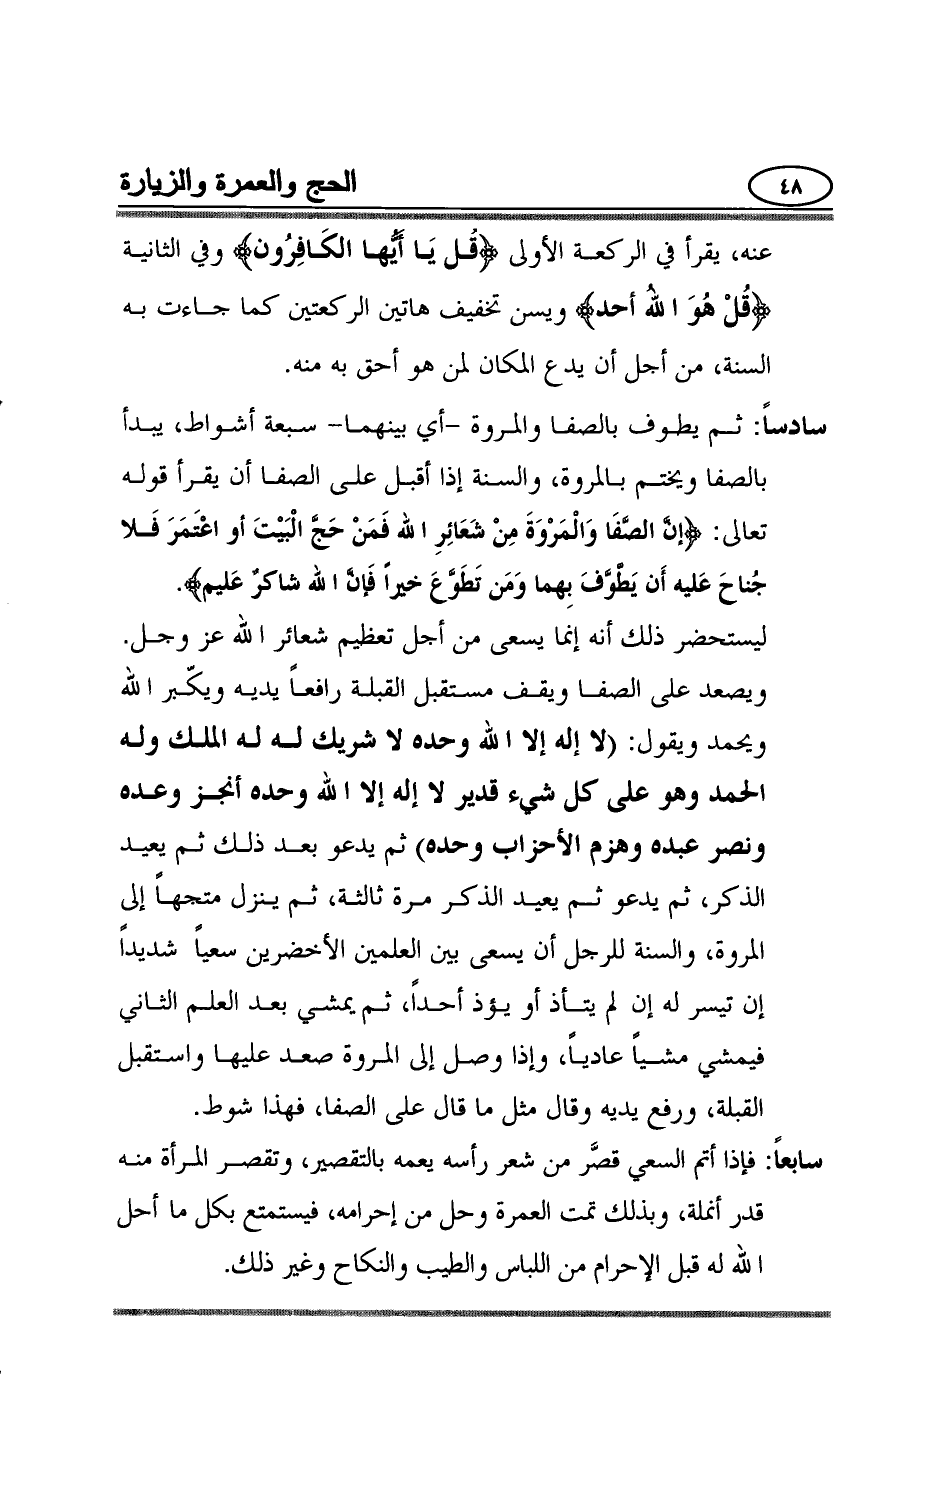 ٤٨ الحج والعمرة والزيارة
عنه، يقرأ في الركعة الأولى ﴿قُل يَا أَيُّها الكَافِرُون﴾ وفي الثانية
﴿قُلْ هُوَ اللهُ أحد﴾ ويسن تخفيف هاتين الركعتين كما جاءت به
السنة، من أجل أن يدع المكان لمن هو أحق به منه.
سادساً: ثم يطوف بالصفا والمروة -أي بينهما- سبعة أشواط، يبدأ
بالصفا ويختم بالمروة، والسنة إذا أقبل على الصفا أن يقرأ قوله
تعالى: ﴿إنَّ الصَّفَا وَالْمَرْوَةَ مِنْ شَعَائِرِ الله فَمَنْ حَجَّ الْبَيْتَ أو اعْتَمَرَ فَلا
جُناحَ عَليه أَن يَطَّوَّفَ بِهما وَمَن تَطَوَّعَ خيراً فَإنَّ الله شاكرٌ عَليم﴾.
ليستحضر ذلك أنه إنما يسعى من أجل تعظيم شعائر الله عز وجل.
ويصعد على الصفا ويقف مستقبل القبلة رافعاً يديه ويكّبر الله
ويحمد ويقول: (لا إله إلا الله وحده لا شريك له له الملك وله
الحمد وهو على كل شيء قدير لا إله إلا الله وحده أنجز وعده
ونصر عبده وهزم الأحزاب وحده) ثم يدعو بعد ذلك ثم يعيد
الذكر، ثم يدعو ثم يعيد الذكر مرة ثالثة، ثم ينزل متجهاً إلى
المروة، والسنة للرجل أن يسعى بين العلمين الأخضرين سعياً شديداً
إن تيسر له إن لم يتأذ أو يؤذ أحداً، ثم يمشي بعد العلم الثاني
فيمشي مشياً عادياً، وإذا وصل إلى المروة صعد عليها واستقبل
القبلة، ورفع يديه وقال مثل ما قال على الصفا، فهذا شوط.
سابعاً: فإذا أتم السعي قصَّر من شعر رأسه يعمه بالتقصير، وتقصر المرأة منه
قدر أنملة، وبذلك تمت العمرة وحل من إحرامه، فيستمتع بكل ما أحل
الله له قبل الإحرام من اللباس والطيب والنكاح وغير ذلك.